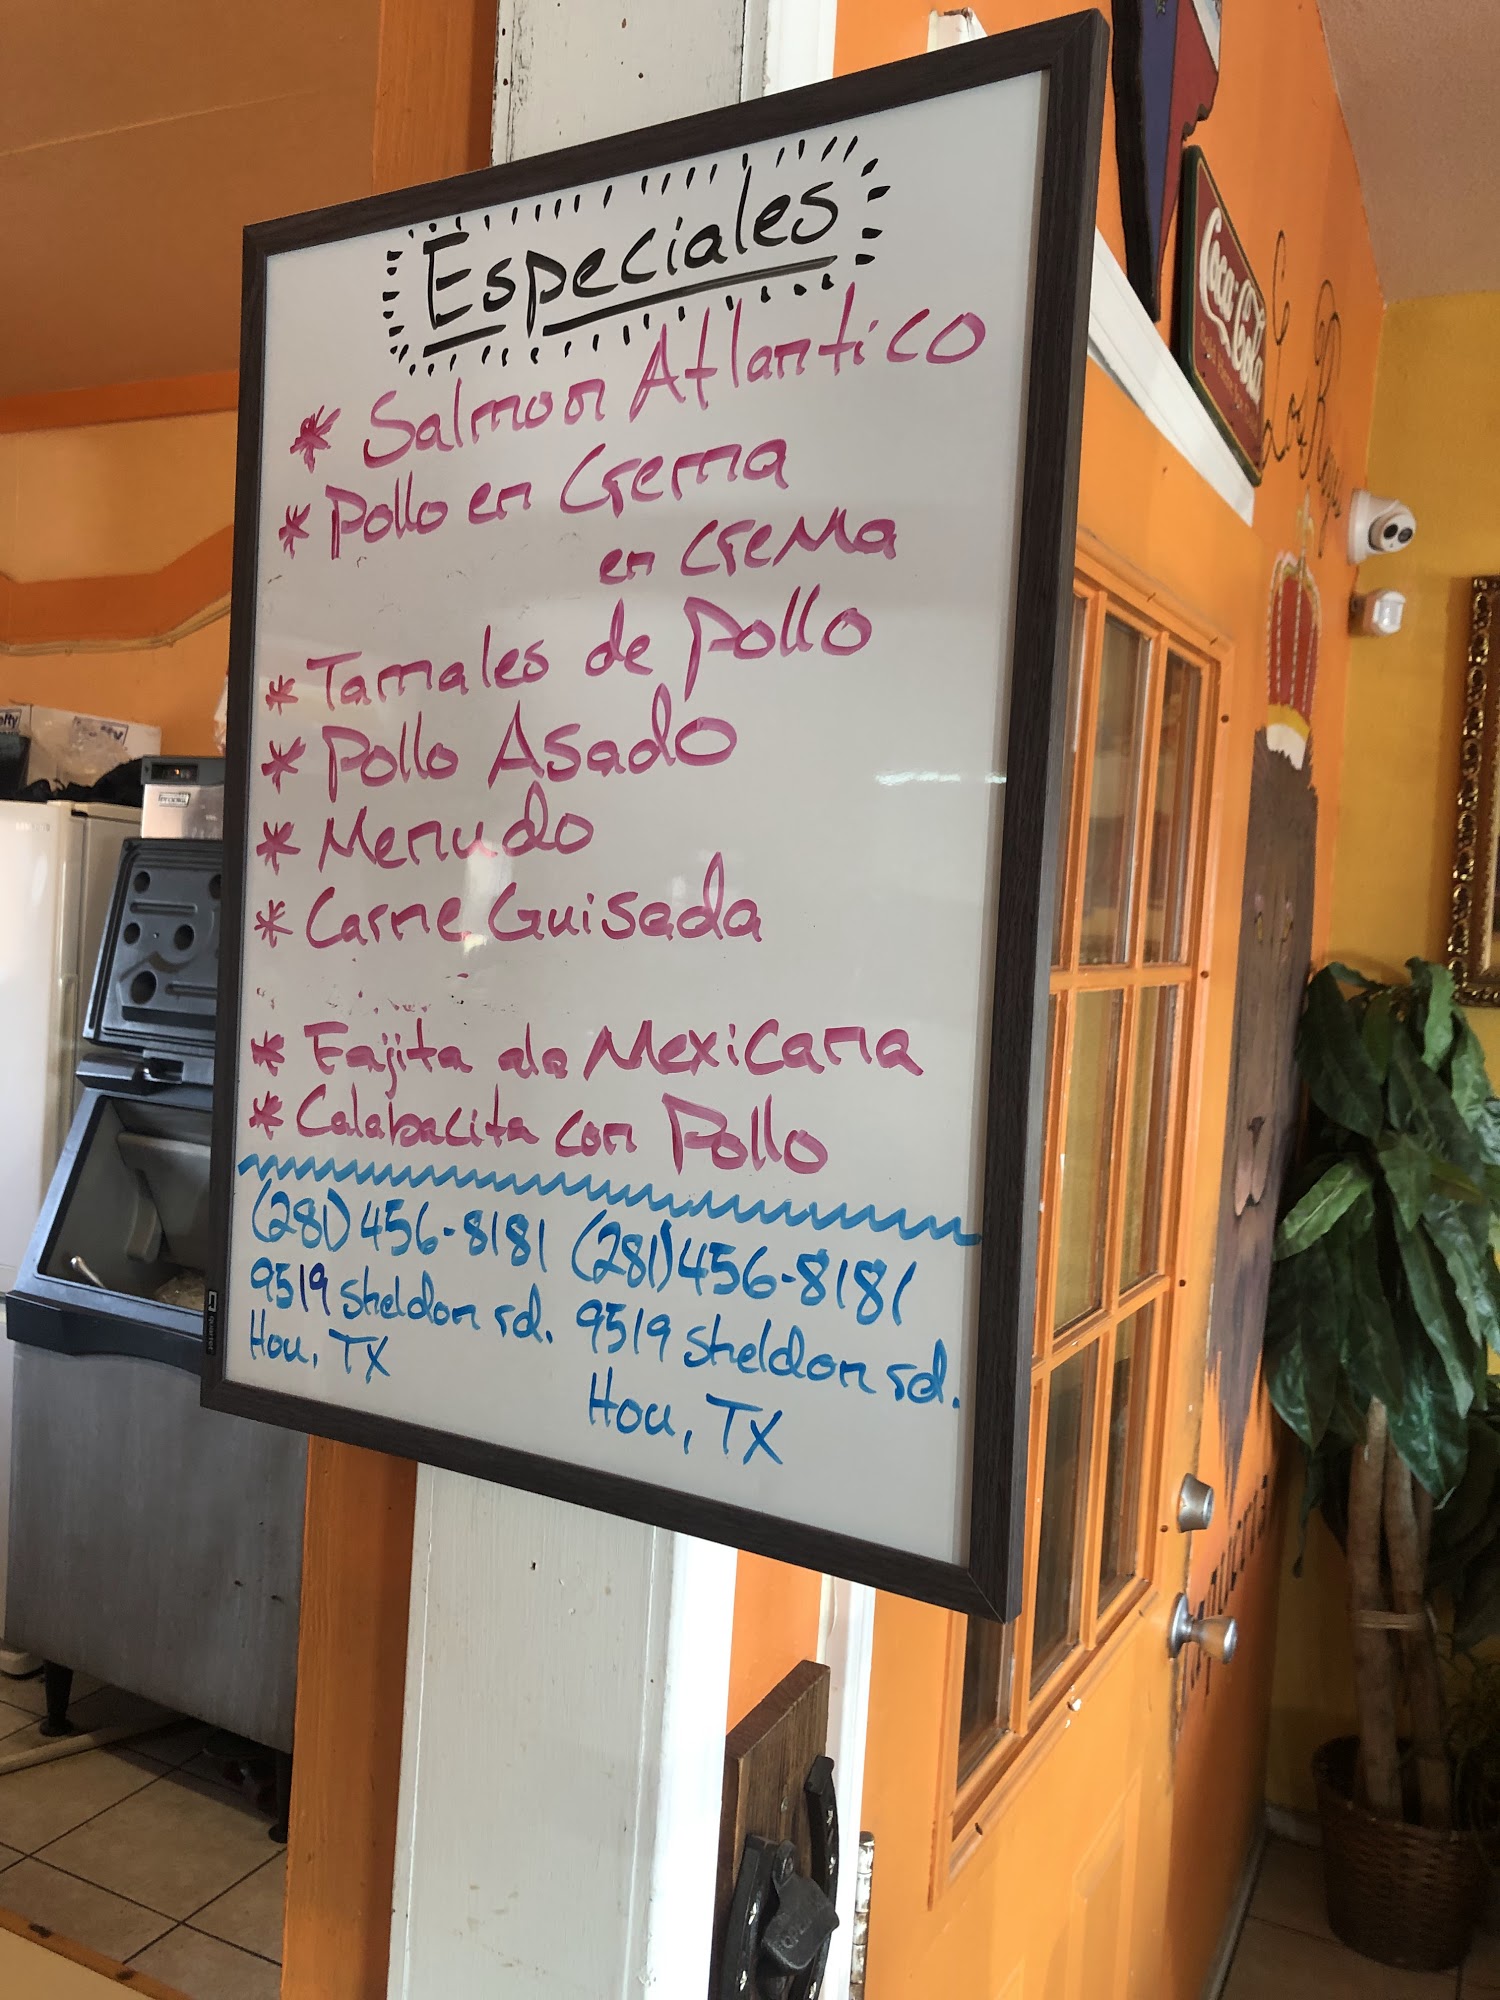 Especiales
* Salmon Atlantico
* Pollo en Crema
en crema
* Tamales de Pollo
* Pollo Asado
* Menudo
* Carne Guisada
* Fajita ala Mexicana
* Calabacita con Pollo
(281) 456-8181
9519 Sheldon rd.
Hou, TX
(281) 456-8181
9519 Sheldon rd.
Hou, TX
Coca-Cola
Los Reyes